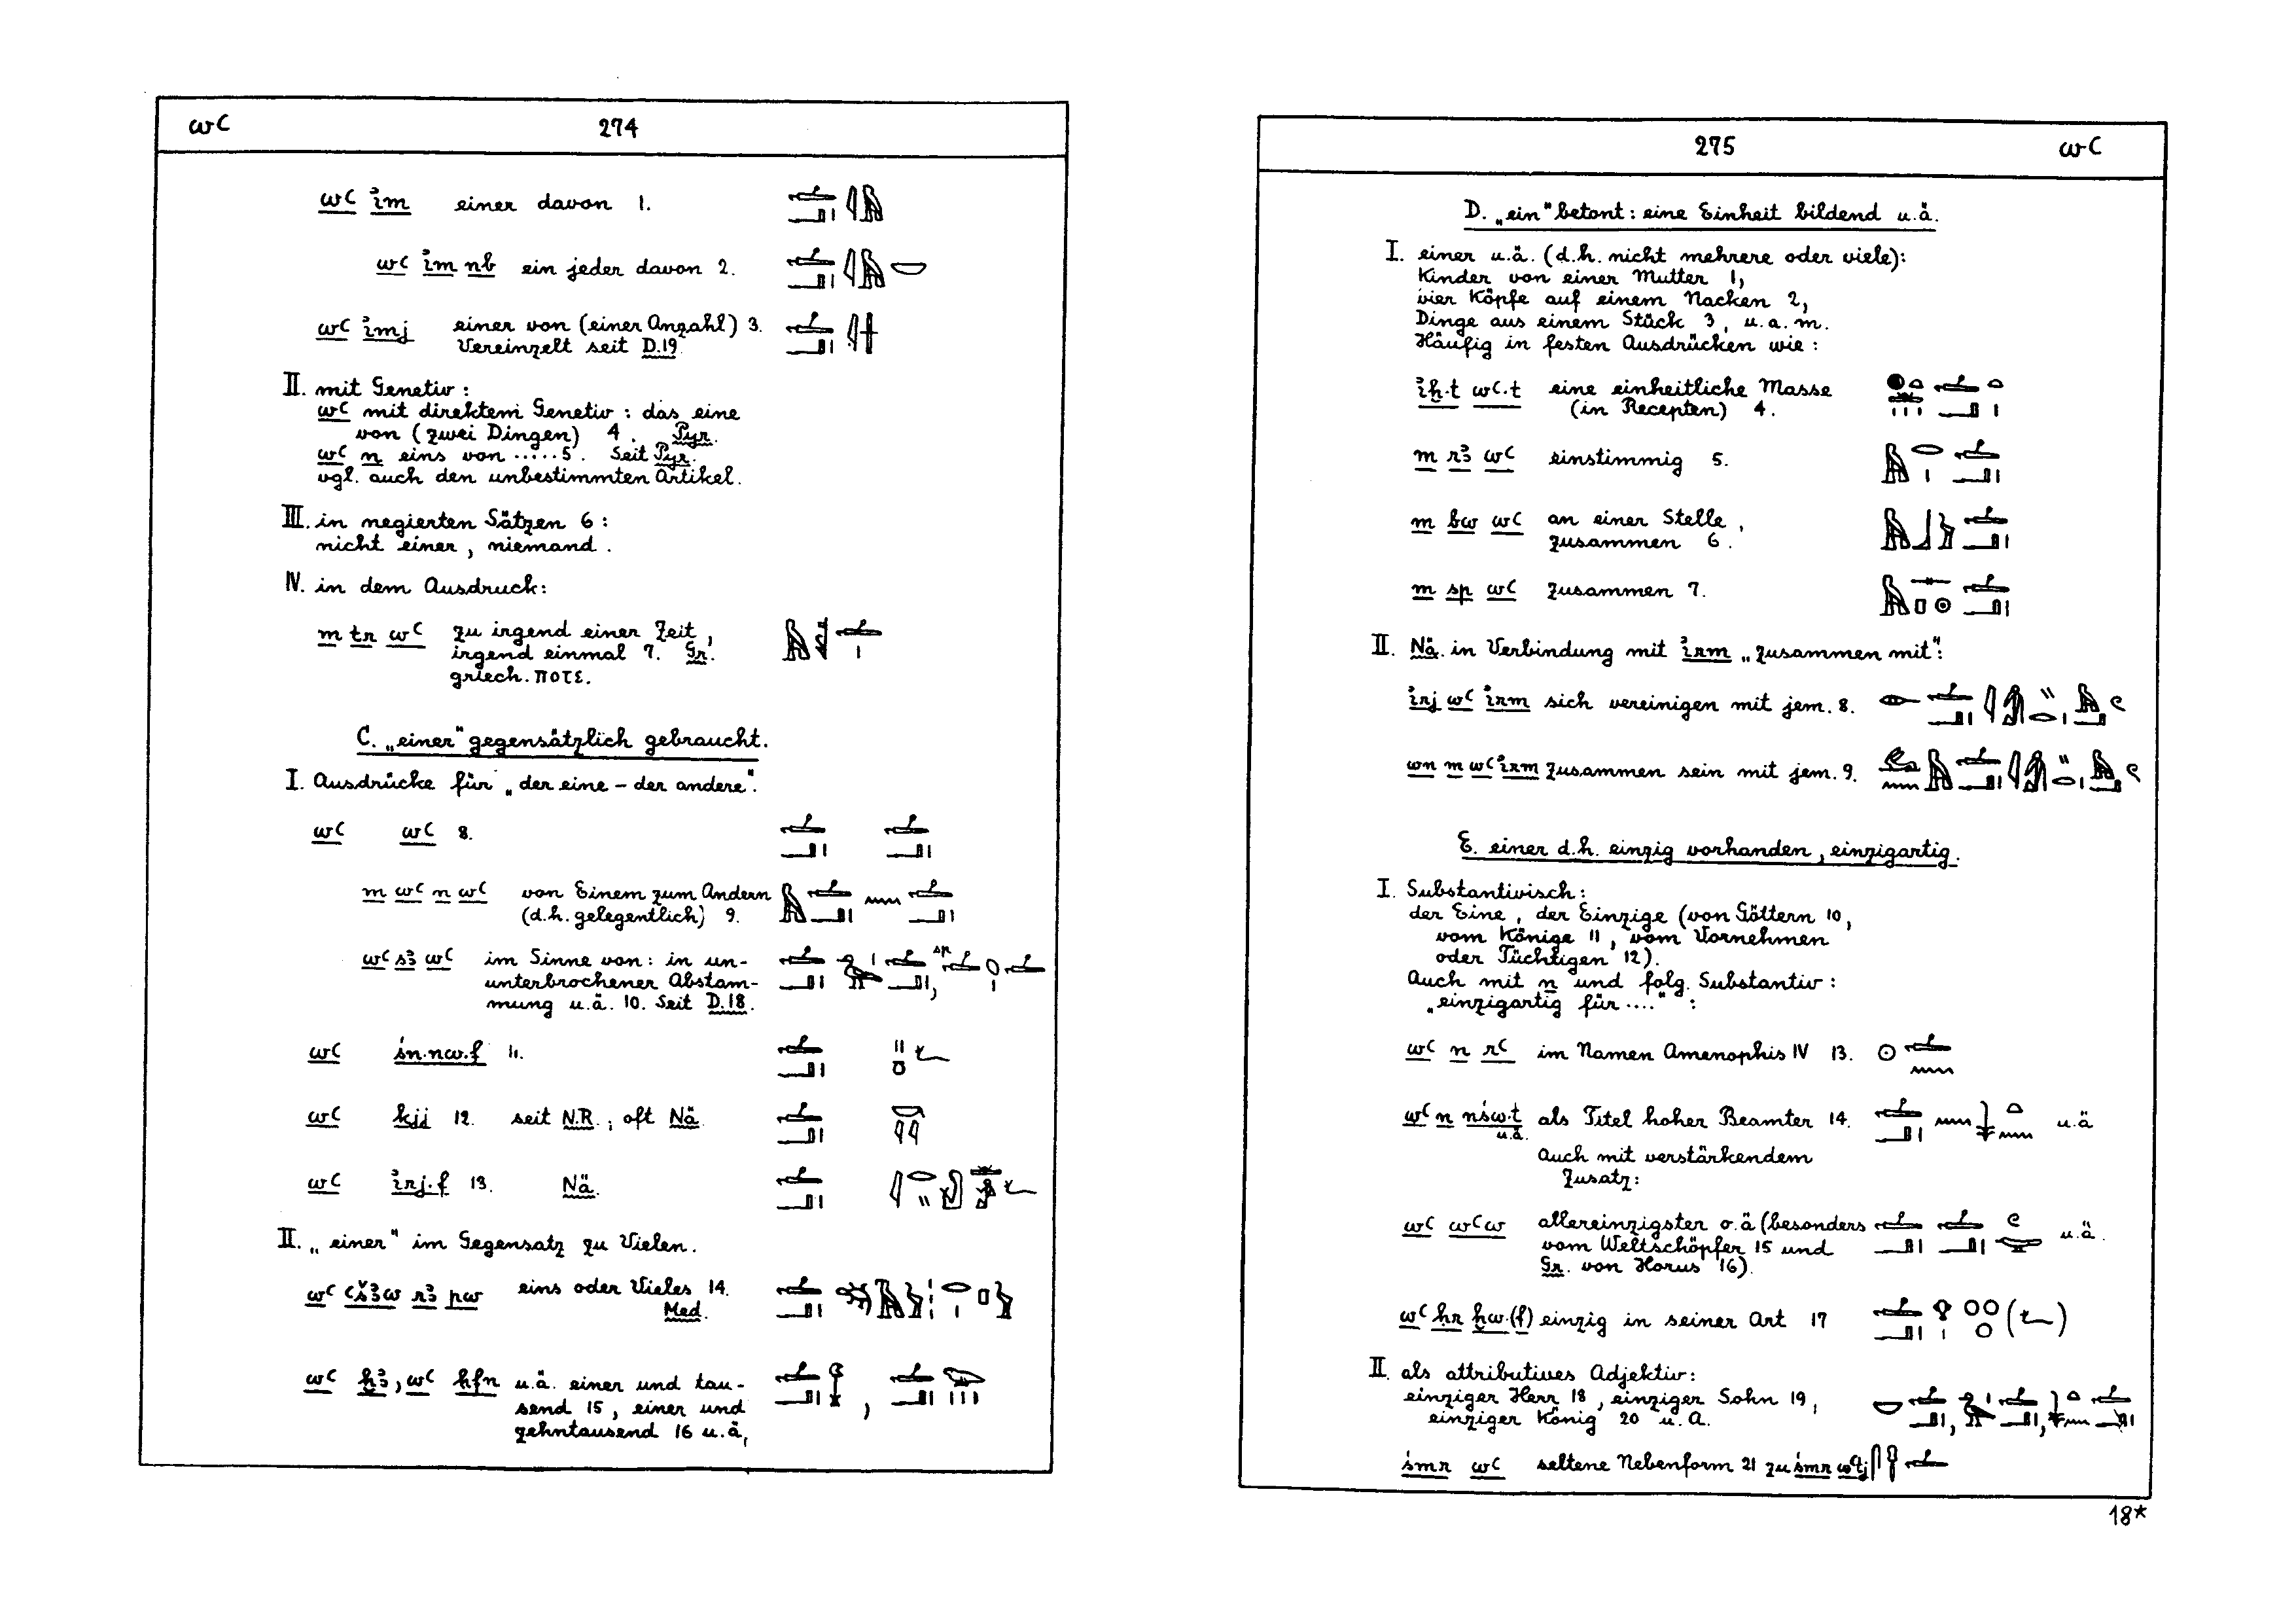 wꜥ 274
wꜥ i͗m einer davon 1.
wꜥ i͗m nb ein jeder davon 2.
wꜥ i͗mj einer von (einer Anzahl) 3.
Vereinzelt seit D.19.
II. mit Genetiv :
wꜥ mit direktem Genetiv : das eine
von (zwei Dingen) 4. Pyr.
wꜥ n eins von ..... 5. Seit Pyr.
vgl. auch den unbestimmten Artikel.
III. in negierten Sätzen 6 :
nicht einer, niemand.
IV. in dem Ausdruck:
m tr wꜥ zu irgend einer Zeit,
irgend einmal 7. Gr.
griech. ποτε.
C. „einer" gegensätzlich gebraucht.
I. Ausdrücke für „der eine – der andere".
wꜥ wꜥ 8.
m wꜥ n wꜥ von Einem zum Andern
(d.h. gelegentlich) 9.
wꜥ sꜣ wꜥ im Sinne von: in un-
unterbrochener Abstam-
mung u.ä. 10. Seit D.18.
wꜥ ś­n.nw.f 11.
wꜥ kjj 12. seit N.R., oft Nä.
wꜥ i͗rj.f 13. Nä.
II. „einer" im Gegensatz zu Vielen.
wꜥ ꜥšꜣw rꜣ pw eins oder Vieles 14.
Med.
wꜥ ḫꜣ, wꜥ ḥfn u.ä. einer und tau-
send 15, einer und
zehntausend 16 u.ä,
275 wꜥ
D. „ein" betont: eine Einheit bildend u.ä.
I. einer u.ä. (d.h. nicht mehrere oder viele):
Kinder von einer Mutter 1,
vier Köpfe auf einem Nacken 2,
Dinge aus einem Stück 3, u.a.m.
Häufig in festen Ausdrücken wie :
i͗ḫ.t wꜥ.t eine einheitliche Masse
(in Recepten) 4.
m rꜣ wꜥ einstimmig 5.
m bw wꜥ an einer Stelle,
zusammen 6.
m sp wꜥ zusammen 7.
II. Nä. in Verbindung mit i͗rm „zusammen mit":
i͗rj wꜥ i͗rm sich vereinigen mit jem. 8.
wn m wꜥ i͗rm zusammen sein mit jem. 9.
E. einer d.h. einzig vorhanden, einzigartig.
I. Substantivisch:
der Eine, der Einzige (von Göttern 10,
vom Könige 11, vom Vornehmen
oder Tüchtigen 12).
Auch mit n und folg. Substantiv :
„einzigartig für ...." :
wꜥ n rꜥ im Namen Amenophis IV 13.
wꜥ n nśw.t als Titel hoher Beamter 14. u.ä
u.ä.
Auch mit verstärkendem
Zusatz:
wꜥ wꜥw allereinzigster o.ä (besonders u.ä.
vom Weltschöpfer 15 und
Gr. von Horus 16).
wꜥ ḥr ḫw.(f) einzig in seiner Art 17
II. als attributives Adjektiv:
einziger Herr 18, einziger Sohn 19,
einziger König 20 u. A.
śmr wꜥ seltene Nebenform 21 zu śmr wꜥtj
18*